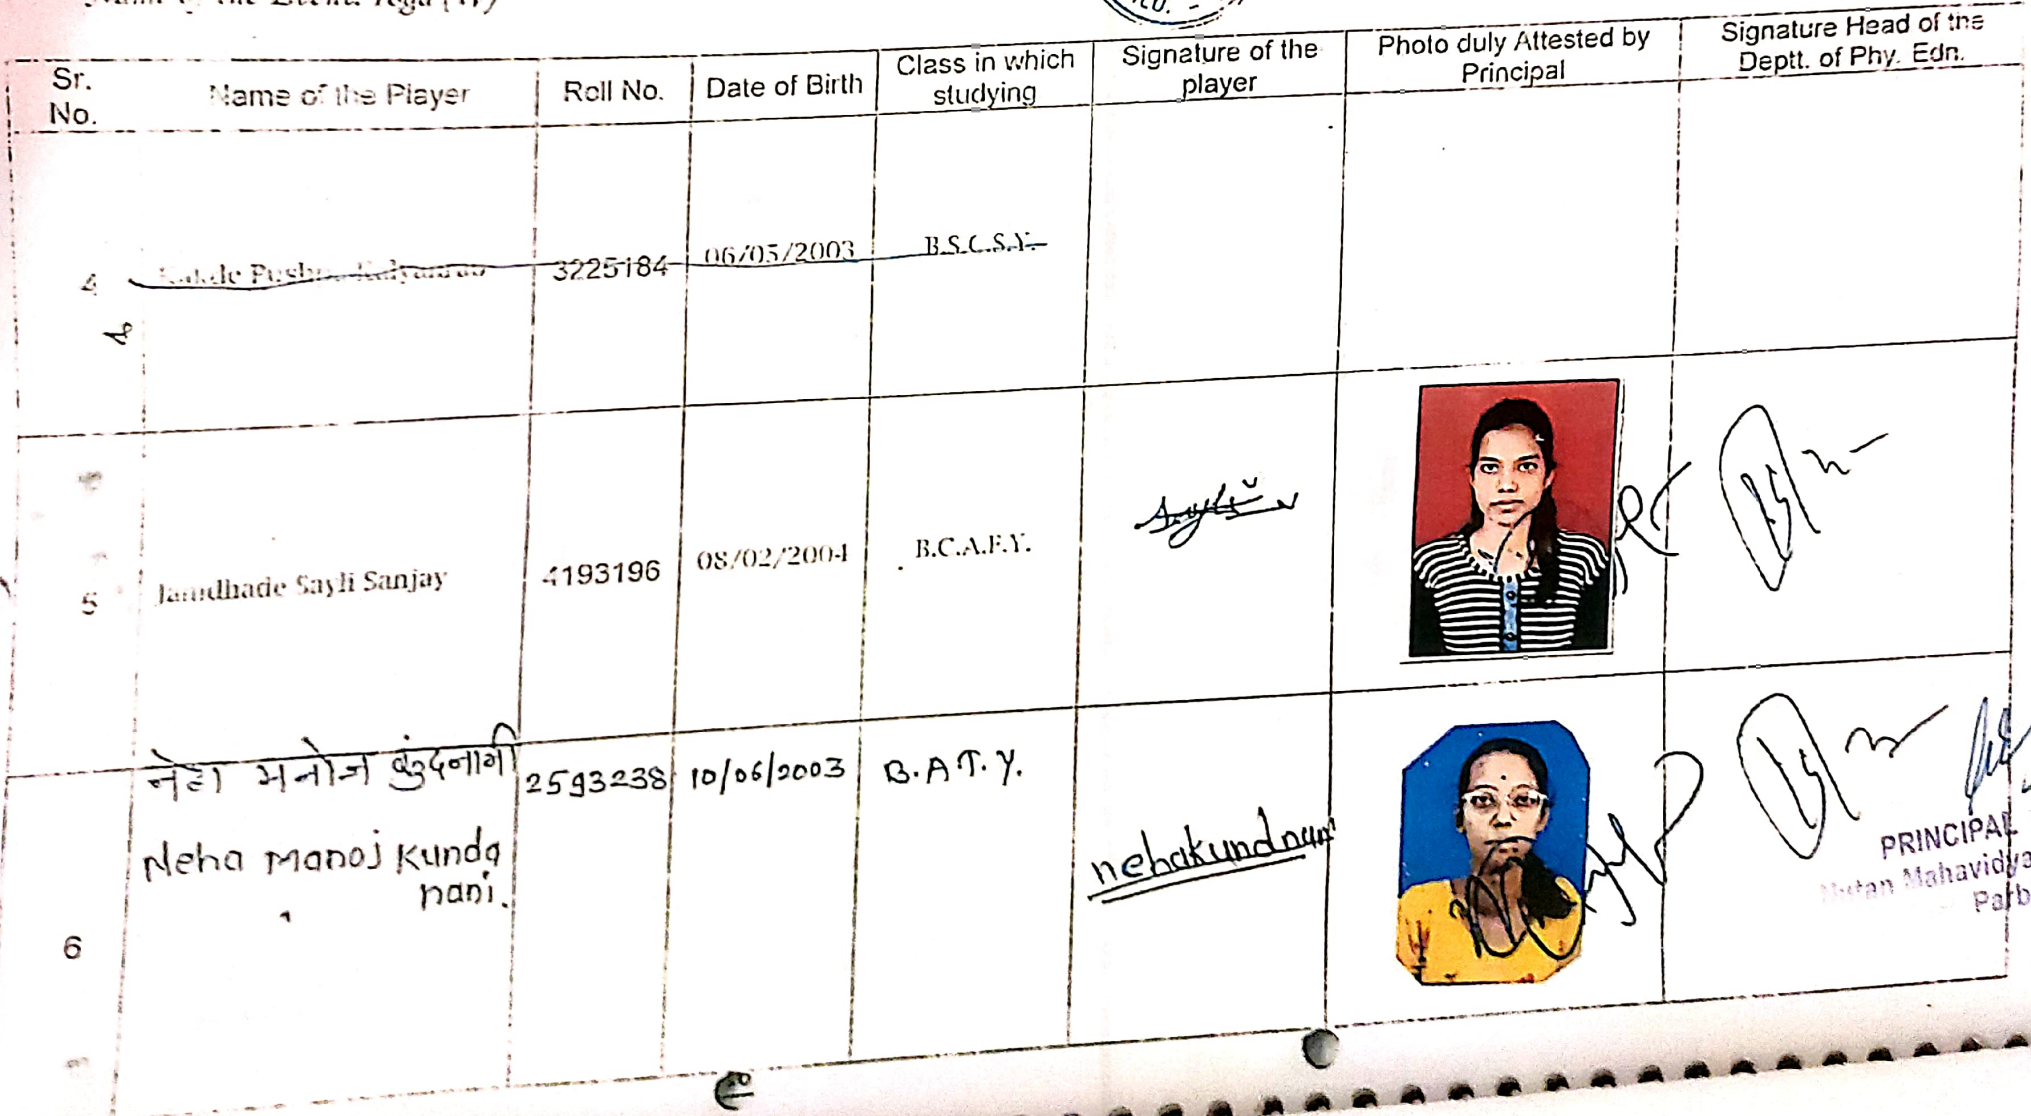 Yoga (W)
Sr. No.
Name of the Player
Roll No.
Date of Birth
Class in which studying
Signature of the player
Photo duly Attested by Principal
Signature Head of the Deptt. of Phy. Edn.
4
3225184
06/05/2003
B.S.C.S.Y.
5
Jamdhade Sayli Sanjay
4193196
08/02/2004
B.C.A.F.Y.
नेहा मनोज कुंदनानी
2593238
10/06/2003
B.A T.Y.
Neha Manoj Kunda
nani.
nehakundnani
6
PRINCIPAL
Nutan Mahavidya
Parb